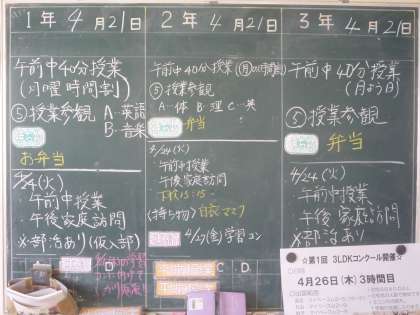 1年 4月21日
午前中40分授業
(月曜時間割)
⑤授業参観 A=英語
B=音楽
お弁当
4/24(火)
午前中授業
午後家庭訪問
※部活あり(仮入部)
2年 4月21日
午前中40分授業(月の時間割)
⑤授業参観
A=体 B=理 C=英
弁当
4/24(火)
午前中授業
午後家庭訪問
下校15:15~
(持ち物) 白衣マスク
4/27(金)学習コン
C D
3年 4月21日
午前中40分授業
(月よう日)
⑤授業参観
弁当
4/24(火)
午前中授業
午後 家庭訪問
※部活あり
☆第1回 3LDKコンクール開催☆
4月26日(木)3時間目